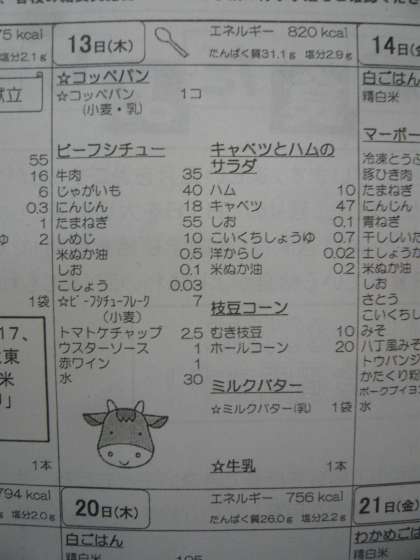 75 kcal
塩分2.1g
13日(木)
エネルギー 820 kcal
たんぱく質31.1g 塩分2.9g
14日(金
献立
55
16
6
0.3
1
ゅ 2
1袋
17、
東
米
り」
1本
☆コッペパン
☆コッペパン 1コ
(小麦・乳)
ビーフシチュー
牛肉 35
じゃがいも 40
にんじん 18
たまねぎ 55
しめじ 10
米ぬか油 0.5
しお 0.1
こしょう 0.03
☆ビーフシチューフレーク 7
(小麦)
トマトケチャップ 2.5
ウスターソース 1
赤ワイン 1
水 30
キャベツとハムの
サラダ
ハム 10
キャベツ 47
しお 0.1
こいくちしょうゆ 0.7
洋からし 0.02
米ぬか油 0.2
枝豆コーン
むき枝豆 10
ホールコーン 20
ミルクバター
☆ミルクバター(乳) 1袋
☆牛乳 1本
白ごはん
精白米
マーボー
冷凍とうふ
豚ひき肉
たまねぎ
にんじん
青ねぎ
干ししいた
土しょうが
米ぬか油
しお
さとう
こいくちし
みそ
八丁屋みそ
トウバンジ
かたくり粉
ポークブイヨン
水
794 kcal
塩分2.0g
20日(木)
エネルギー 756 kcal
たんぱく質26.0g 塩分2.2g
21日(金)
白ごはん
精白米 105
わかめごは
精白米